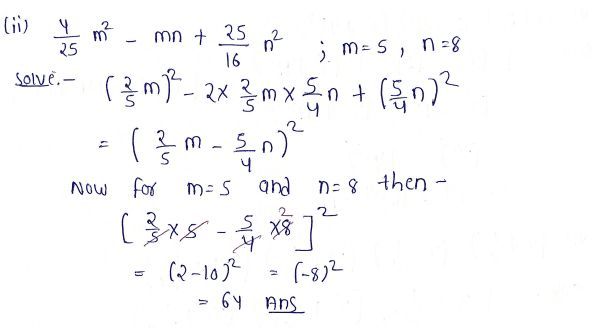 (ii) 4/25 m² - mn + 25/16 n² ; m=5, n=8
Solve.- (2/5 m)² - 2x 2/5 m x 5/4 n + (5/4 n)²
= (2/5 m - 5/4 n)²
Now for m=5 and n=8 then -
[2/5 x 5 - 5/4 x 8 2]²
= (2-10)² = (-8)²
= 64 Ans